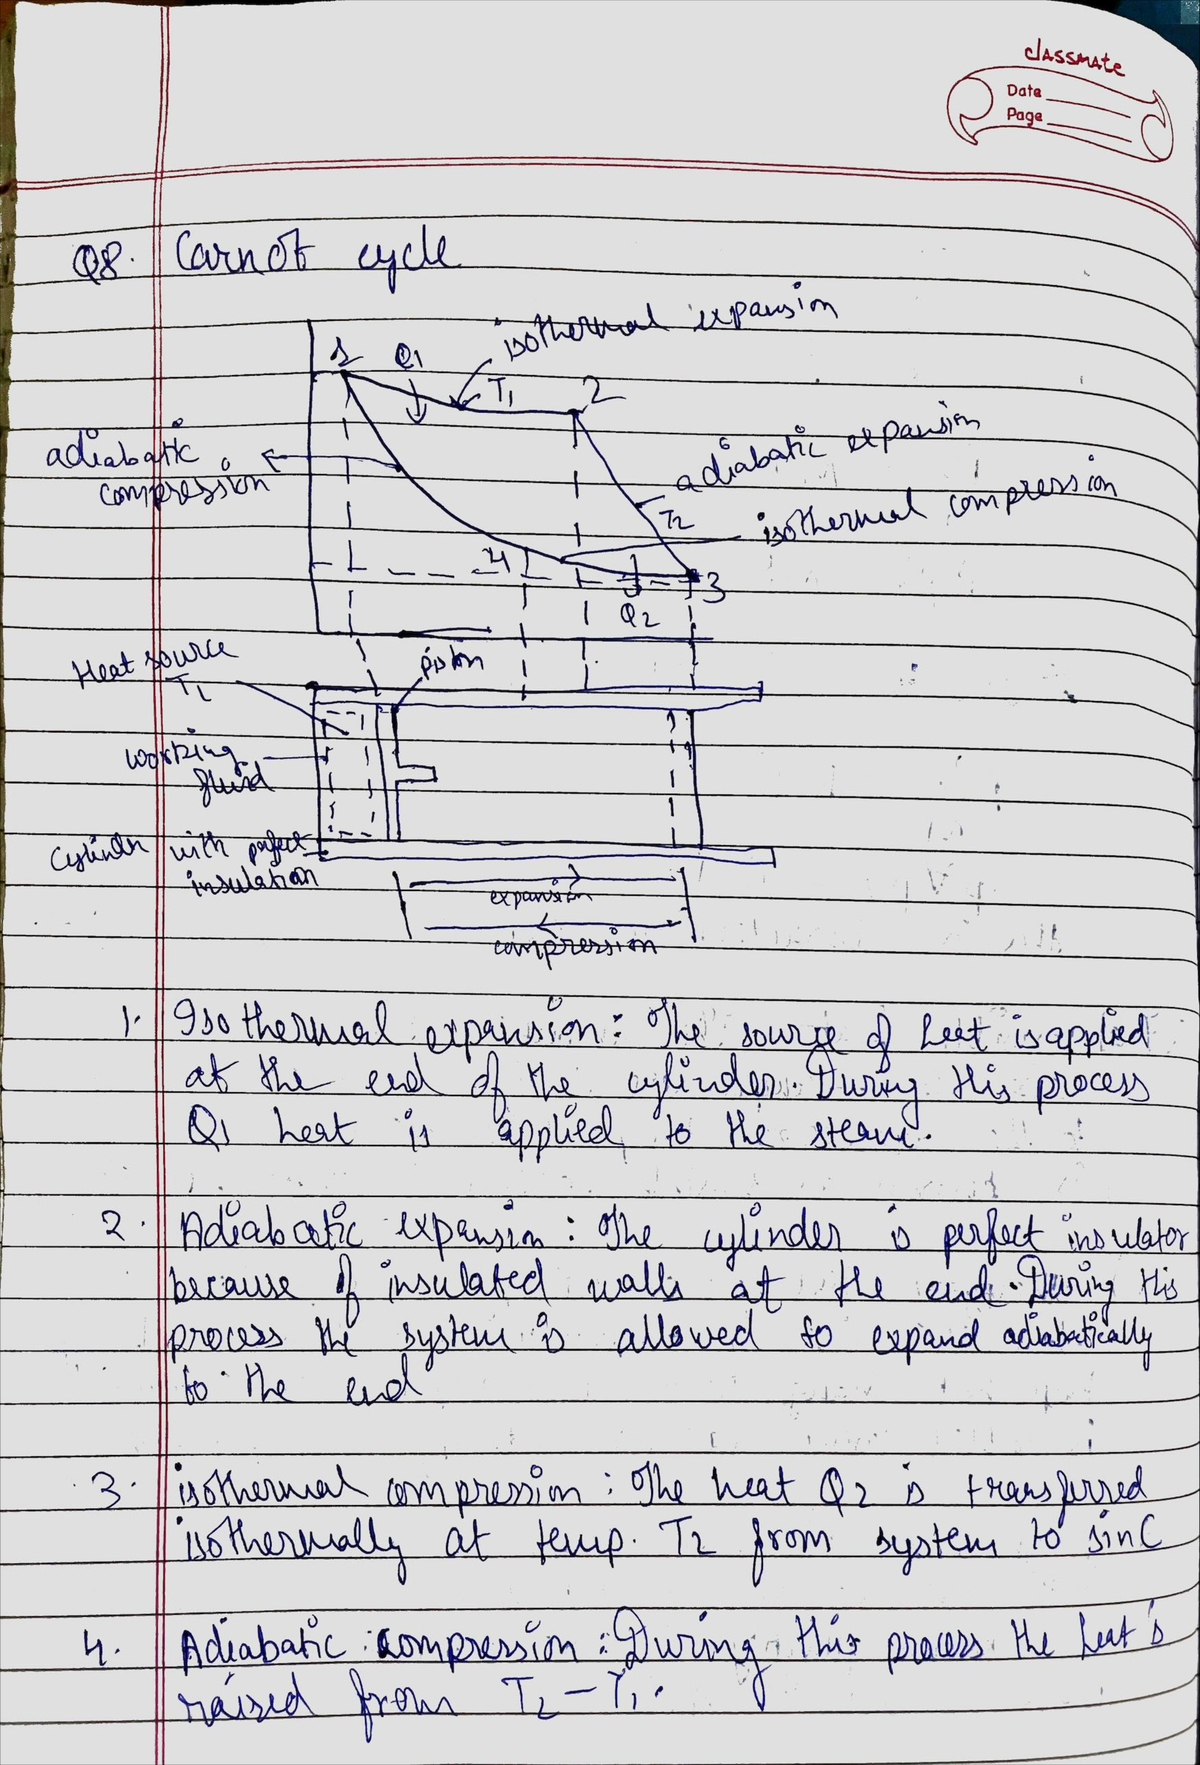 classmate
Date
Page
Q8. Carnot cycle
isothermal expansion
1 Q1 T1 2
adiabatic expansion
adiabatic
compression
T2
isothermal compression
4
3
Q2
Heat source
T1
piston
working
fluid
Cylinder with perfect
insulation
expansion
compression
1. Isothermal expansion: The source of heat is applied
at the end of the cylinder. During this process
Q1 heat is applied to the steam.
2. Adiabatic expansion: The cylinder is perfect insulator
because of insulated walls at the end. During this
process the system is allowed to expand adiabatically
to the end
3. isothermal compression: The heat Q2 is transferred
isothermally at temp. T2 from system to sinC
4. Adiabatic compression: During this process the heat is
raised from T2 - T1.